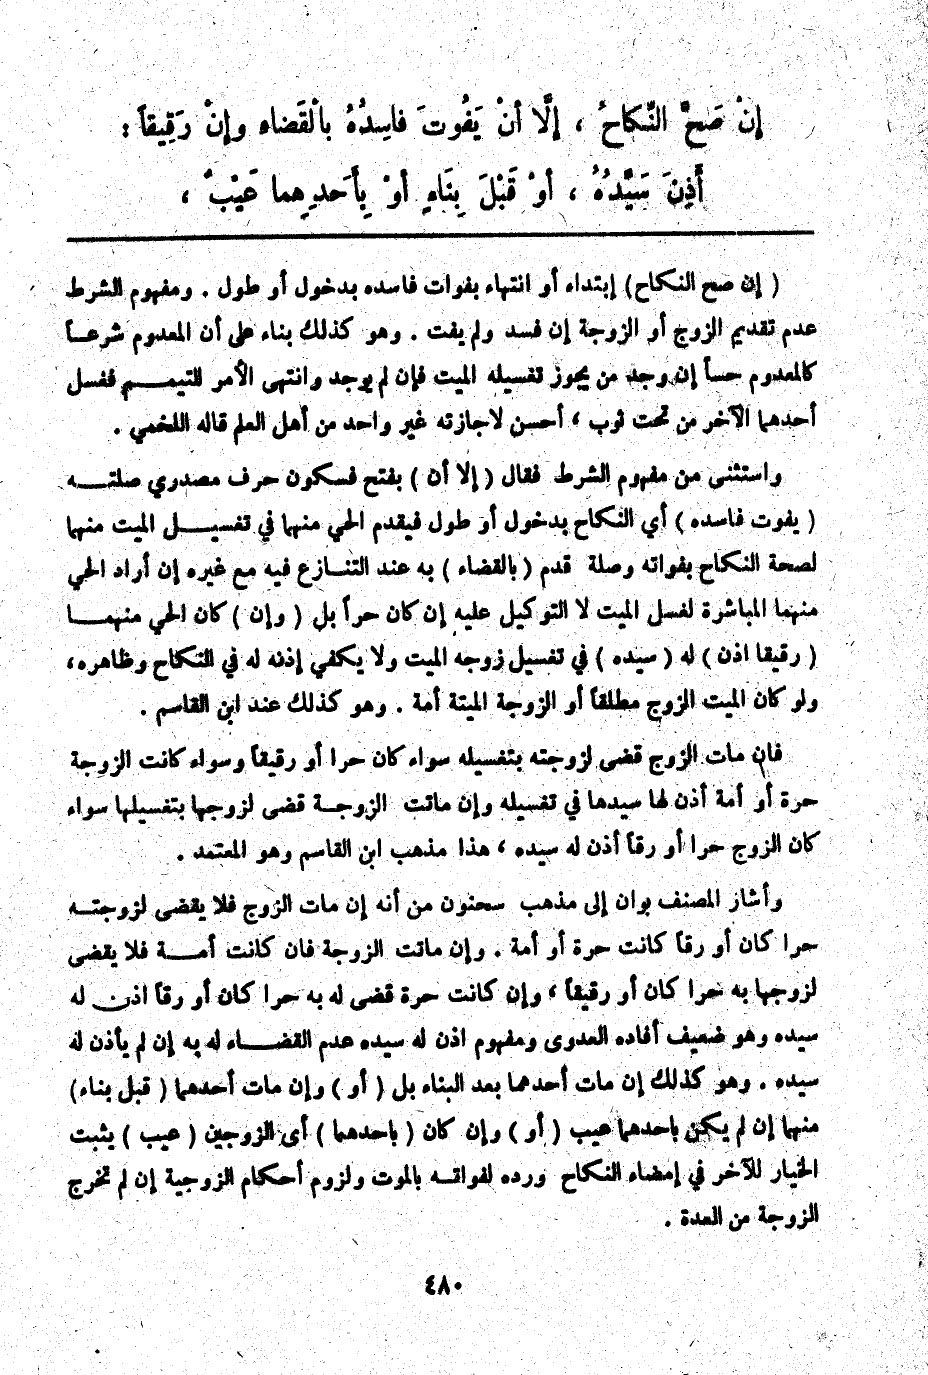 إِنْ صَحَّ النِّكاحُ ، إلَّا أنْ يَفُوتَ فاسِدُهُ بالْقَضاءِ وإنْ رَقِيقاً :
أَذِنَ سَيِّدُهُ ، أوْ قَبْلَ بِنَاءٍ أوْ بِأَحدِهِما عَيْبٌ ،
( إن صح النكاح ) إبتداء أو انتهاء بفوات فاسده بدخول أو طول . ومفهوم الشرط
عدم تقديم الزوج أو الزوجة إن فسد ولم يفت . وهو كذلك بناء على أن المعدوم شرعاً
كالمعدوم حساً إن وجد من يجوز تغسيله الميت فإن لم يوجد وانتهى الأمر للتيمم فغسل
أحدهما الآخر من تحت ثوب ، أحسن لاجازته غير واحد من أهل العلم قاله اللخمي .
واستثنى من مفهوم الشرط فقال ( إلا أن ) بفتح فسكون حرف مصدري صلته
( يفوت فاسده ) أي النكاح بدخول أو طول فيقدم الحي منهما في تغسيل الميت منهما
لصحة النكاح بفواته وصلة قدم ( بالقضاء ) به عند التنازع فيه مع غيره إن أراد الحي
منهما المباشرة لغسل الميت لا التوكيل عليه إن كان حراً بل ( وإن ) كان الحي منهما
( رقيقا اذن ) له ( سيده ) في تغسيل زوجه الميت ولا يكفي إذنه له في النكاح وظاهره،
ولو كان الميت الزوج مطلقاً أو الزوجة الميتة أمة . وهو كذلك عند ابن القاسم .
فان مات الزوج قضى لزوجته بتغسيله سواء كان حرا أو رقيقاً وسواء كانت الزوجة
حرة أو أمة أذن لها سيدها في تغسيله وإن ماتت الزوجة قضى لزوجها بتغسيلها سواء
كان الزوج حرا أو رقاً أذن له سيده ، هذا مذهب ابن القاسم وهو المعتمد .
وأشار المصنف بوان إلى مذهب سحنون من أنه إن مات الزوج فلا يقضى لزوجته
حرا كان أو رقاً كانت حرة أو أمة . وإن ماتت الزوجة فان كانت أمة فلا يقضى
لزوجها به حرا كان أو رقيقاً ، وإن كانت حرة قضى له به حرا كان أو رقاً اذن له
سيده وهو ضعيف أفاده العدوى ومفهوم اذن له سيده عدم القضاء له به إن لم يأذن له
سيده . وهو كذلك إن مات أحدهما بعد البناء بل ( أو ) وإن مات أحدهما ( قبل بناء)
منهما إن لم يكن باحدهما عيب ( أو ) وإن كان ( باحدهما ) أى الزوجين ( عيب ) يثبت
الخيار للآخر في إمضاء النكاح ورده لفواته بالموت ولزوم أحكام الزوجية إن لم تخرج
الزوجة من العدة .
٤٨٠